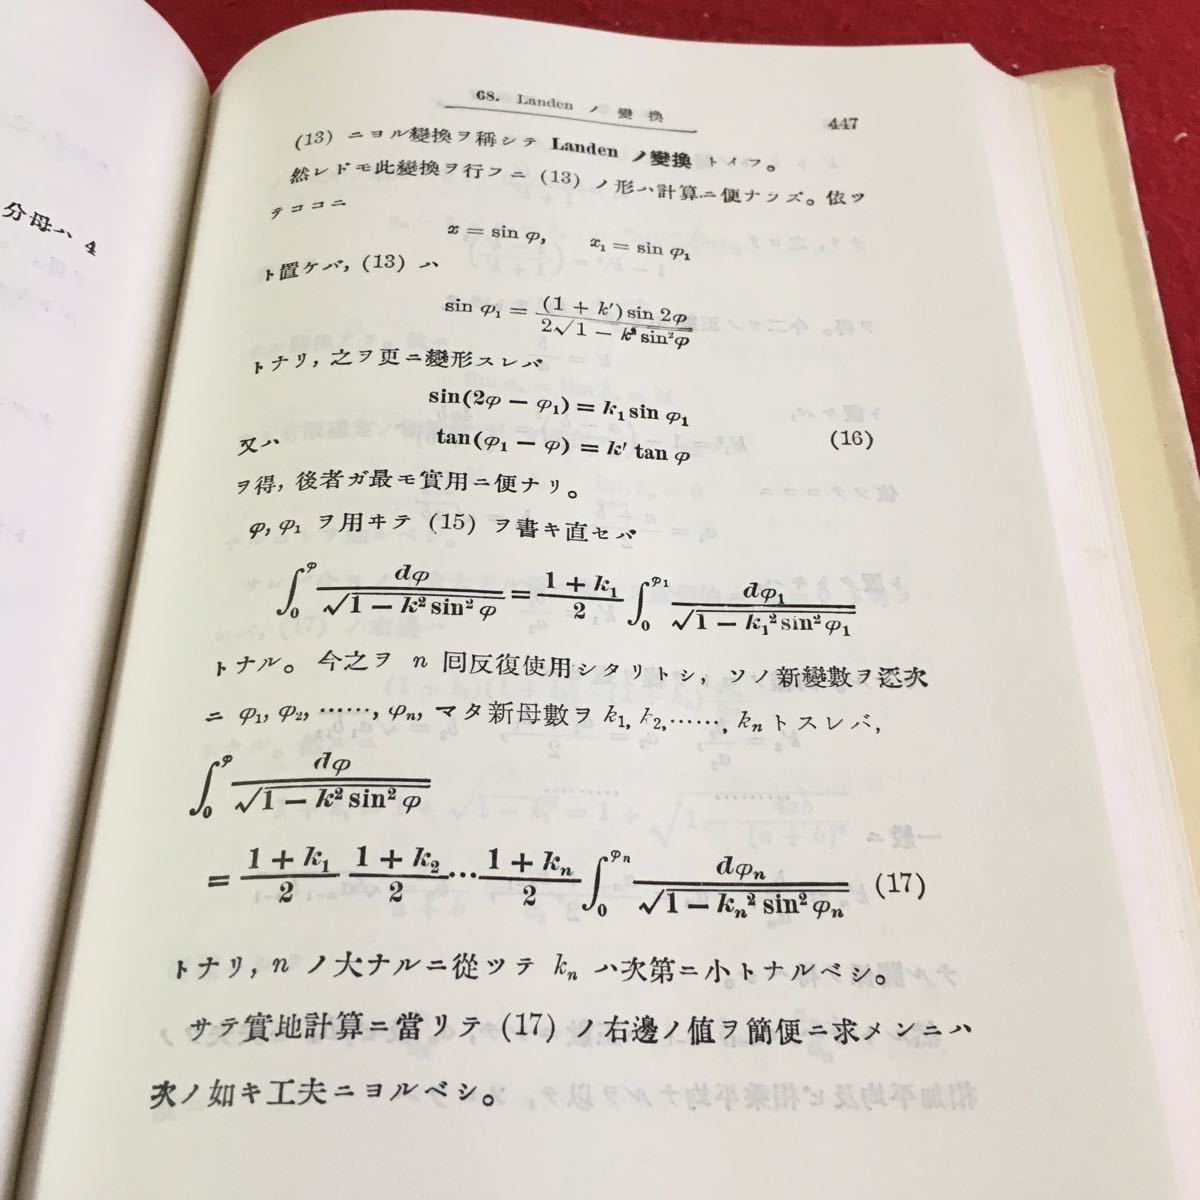 分母ハ 4
68. Landen ノ 變 換
447
(13) ニヨル變換ヲ稱シテ Landen ノ變換 トイフ。
然レドモ此變換ヲ行フニ (13) ノ形ハ計算ニ便ナラズ。依ツ
テココニ
x = sin φ, x₁ = sin φ₁
ト置ケバ, (13) ハ
sin φ₁ = (1 + k′)sin 2φ / 2√1 − k² sin²φ
トナリ, 之ヲ更ニ變形スレバ
sin(2φ − φ₁) = k₁ sin φ₁
又ハ tan(φ₁ − φ) = k′ tan φ (16)
ヲ得, 後者ガ最モ實用ニ便ナリ。
φ, φ₁ ヲ用ヰテ (15) ヲ書キ直セバ
∫₀^φ dφ / √1 − k² sin² φ = (1 + k₁)/2 ∫₀^φ₁ dφ₁ / √1 − k₁² sin² φ₁
トナル。今之ヲ n 囘反復使用シタリトシ, ソノ新變數ヲ逐次
ニ φ₁, φ₂, ……, φₙ, マタ新母數ヲ k₁, k₂, ……, kₙ トスレバ,
∫₀^φ dφ / √1 − k² sin² φ
= (1 + k₁)/2 (1 + k₂)/2 … (1 + kₙ)/2 ∫₀^φₙ dφₙ / √1 − kₙ² sin² φₙ (17)
トナリ, n ノ大ナルニ從ツテ kₙ ハ次第ニ小トナルベシ。
サテ實地計算ニ當リテ (17) ノ右邊ノ値ヲ簡便ニ求メンニハ
次ノ如キ工夫ニヨルベシ。